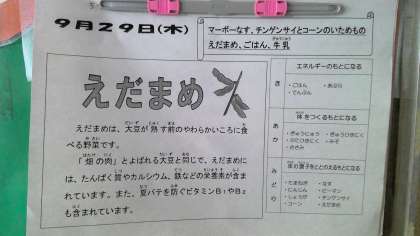 9月29日(木)
マーボーなす、チンゲンサイとコーンのいためもの
えだまめ、ごはん、牛乳
えだまめ
えだまめは、大豆が熟す前のやわらかいころに食
べる野菜です。
「畑の肉」とよばれる大豆と同じで、えだまめに
は、たんぱく質やカルシウム、鉄などの栄養素が含ま
れています。また、夏バテを防ぐビタミンB1やB2
も含まれています。
エネルギーのもとになる
き
・ごはん ・あぶら
・でんぷん
体をつくるもとになる
あか
・ぎゅうにゅう ・ぎゅうひきにく
・ぶたひきにく ・みそ
・ささみ
体の調子をととのえるもとになる
みどり
・たまねぎ ・なす
・にんじん ・ピーマン
・しょうが ・チンゲンサイ
・コーン ・えだまめ